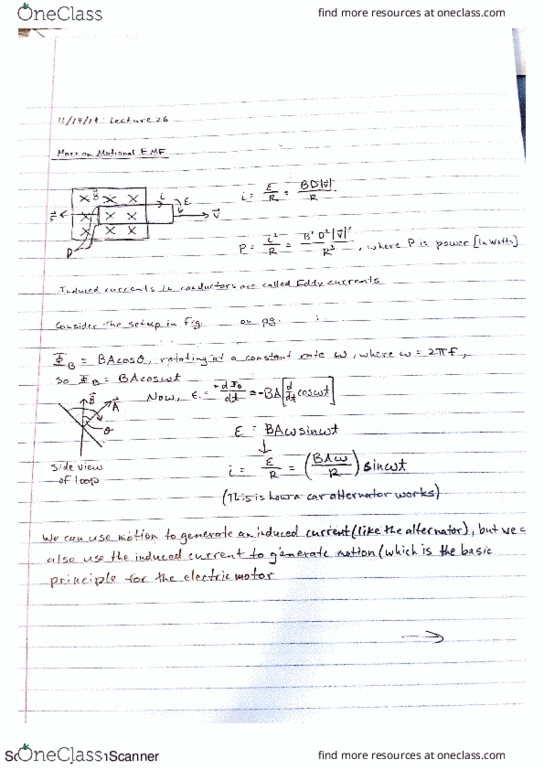 OneClass
find more resources at oneclass.com
11/19/14: Lecture 26
More on Motional EMF
x B x x
x x x
x x x
i ε
F v
D
i = ε/R = BD|v|/R
P = i²/R = B²D²|v|²/R³, where P is power [in Watts]
Induced currents in conductors are called Eddy currents
Consider the setup in Fig. on pg. :
Φ_B = BAcosθ, rotating at a constant rate ω, where ω = 2πf,
so Φ_B = BAcosωt
Now, ε = -dΦ_B/dt = -BA[d/dt cosωt]
B A
θ
side view
of loop
ε = BAωsinωt
↓
i = ε/R = (BAω/R) sinωt
(This is how a car alternator works)
We can use motion to generate an induced current (like the alternator), but we c
also use the induced current to generate motion (which is the basic
principle for the electric motor
→
OneClass
Scanner
find more resources at oneclass.com